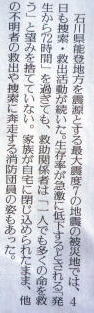 石川県能登地方を震源とする最大震度7の地震の被災地では、4
日も捜索・救出活動が続いた。生存率が急激に低下するとされる「発
生から72時間」を過ぎても、救助関係者は「一人でも多くの命を救
う」と望みを捨てていない。家族が自宅に閉じ込められたまま、他
の不明者の救出や捜索に奔走する消防団員の姿もあった。